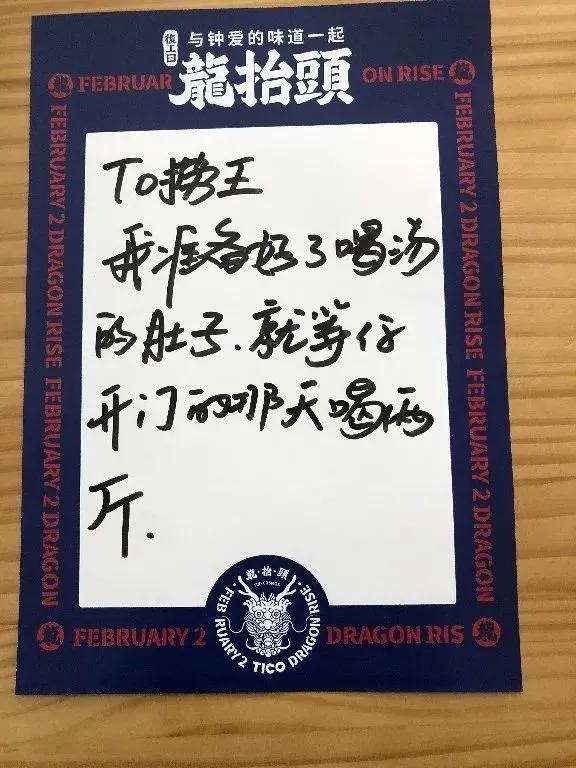 復工日
与钟爱的味道一起
龍抬頭
龍 FEBRUAR
ON RISE 龍
FEBRUARY 2 DRAGON RISE FEBRUARY 2 DRAGON
FEBRUARY 2 DRAGON RISE FEBRUARY 2 DRAGON
To捞王
我准备好了喝汤
的肚子.就等仔
开门的那天喝俩
斤.
龍·抬·頭
FEBRUARY 2 TICO DRAGON RISE
龍 FEBRUARY 2
DRAGON RIS 龍